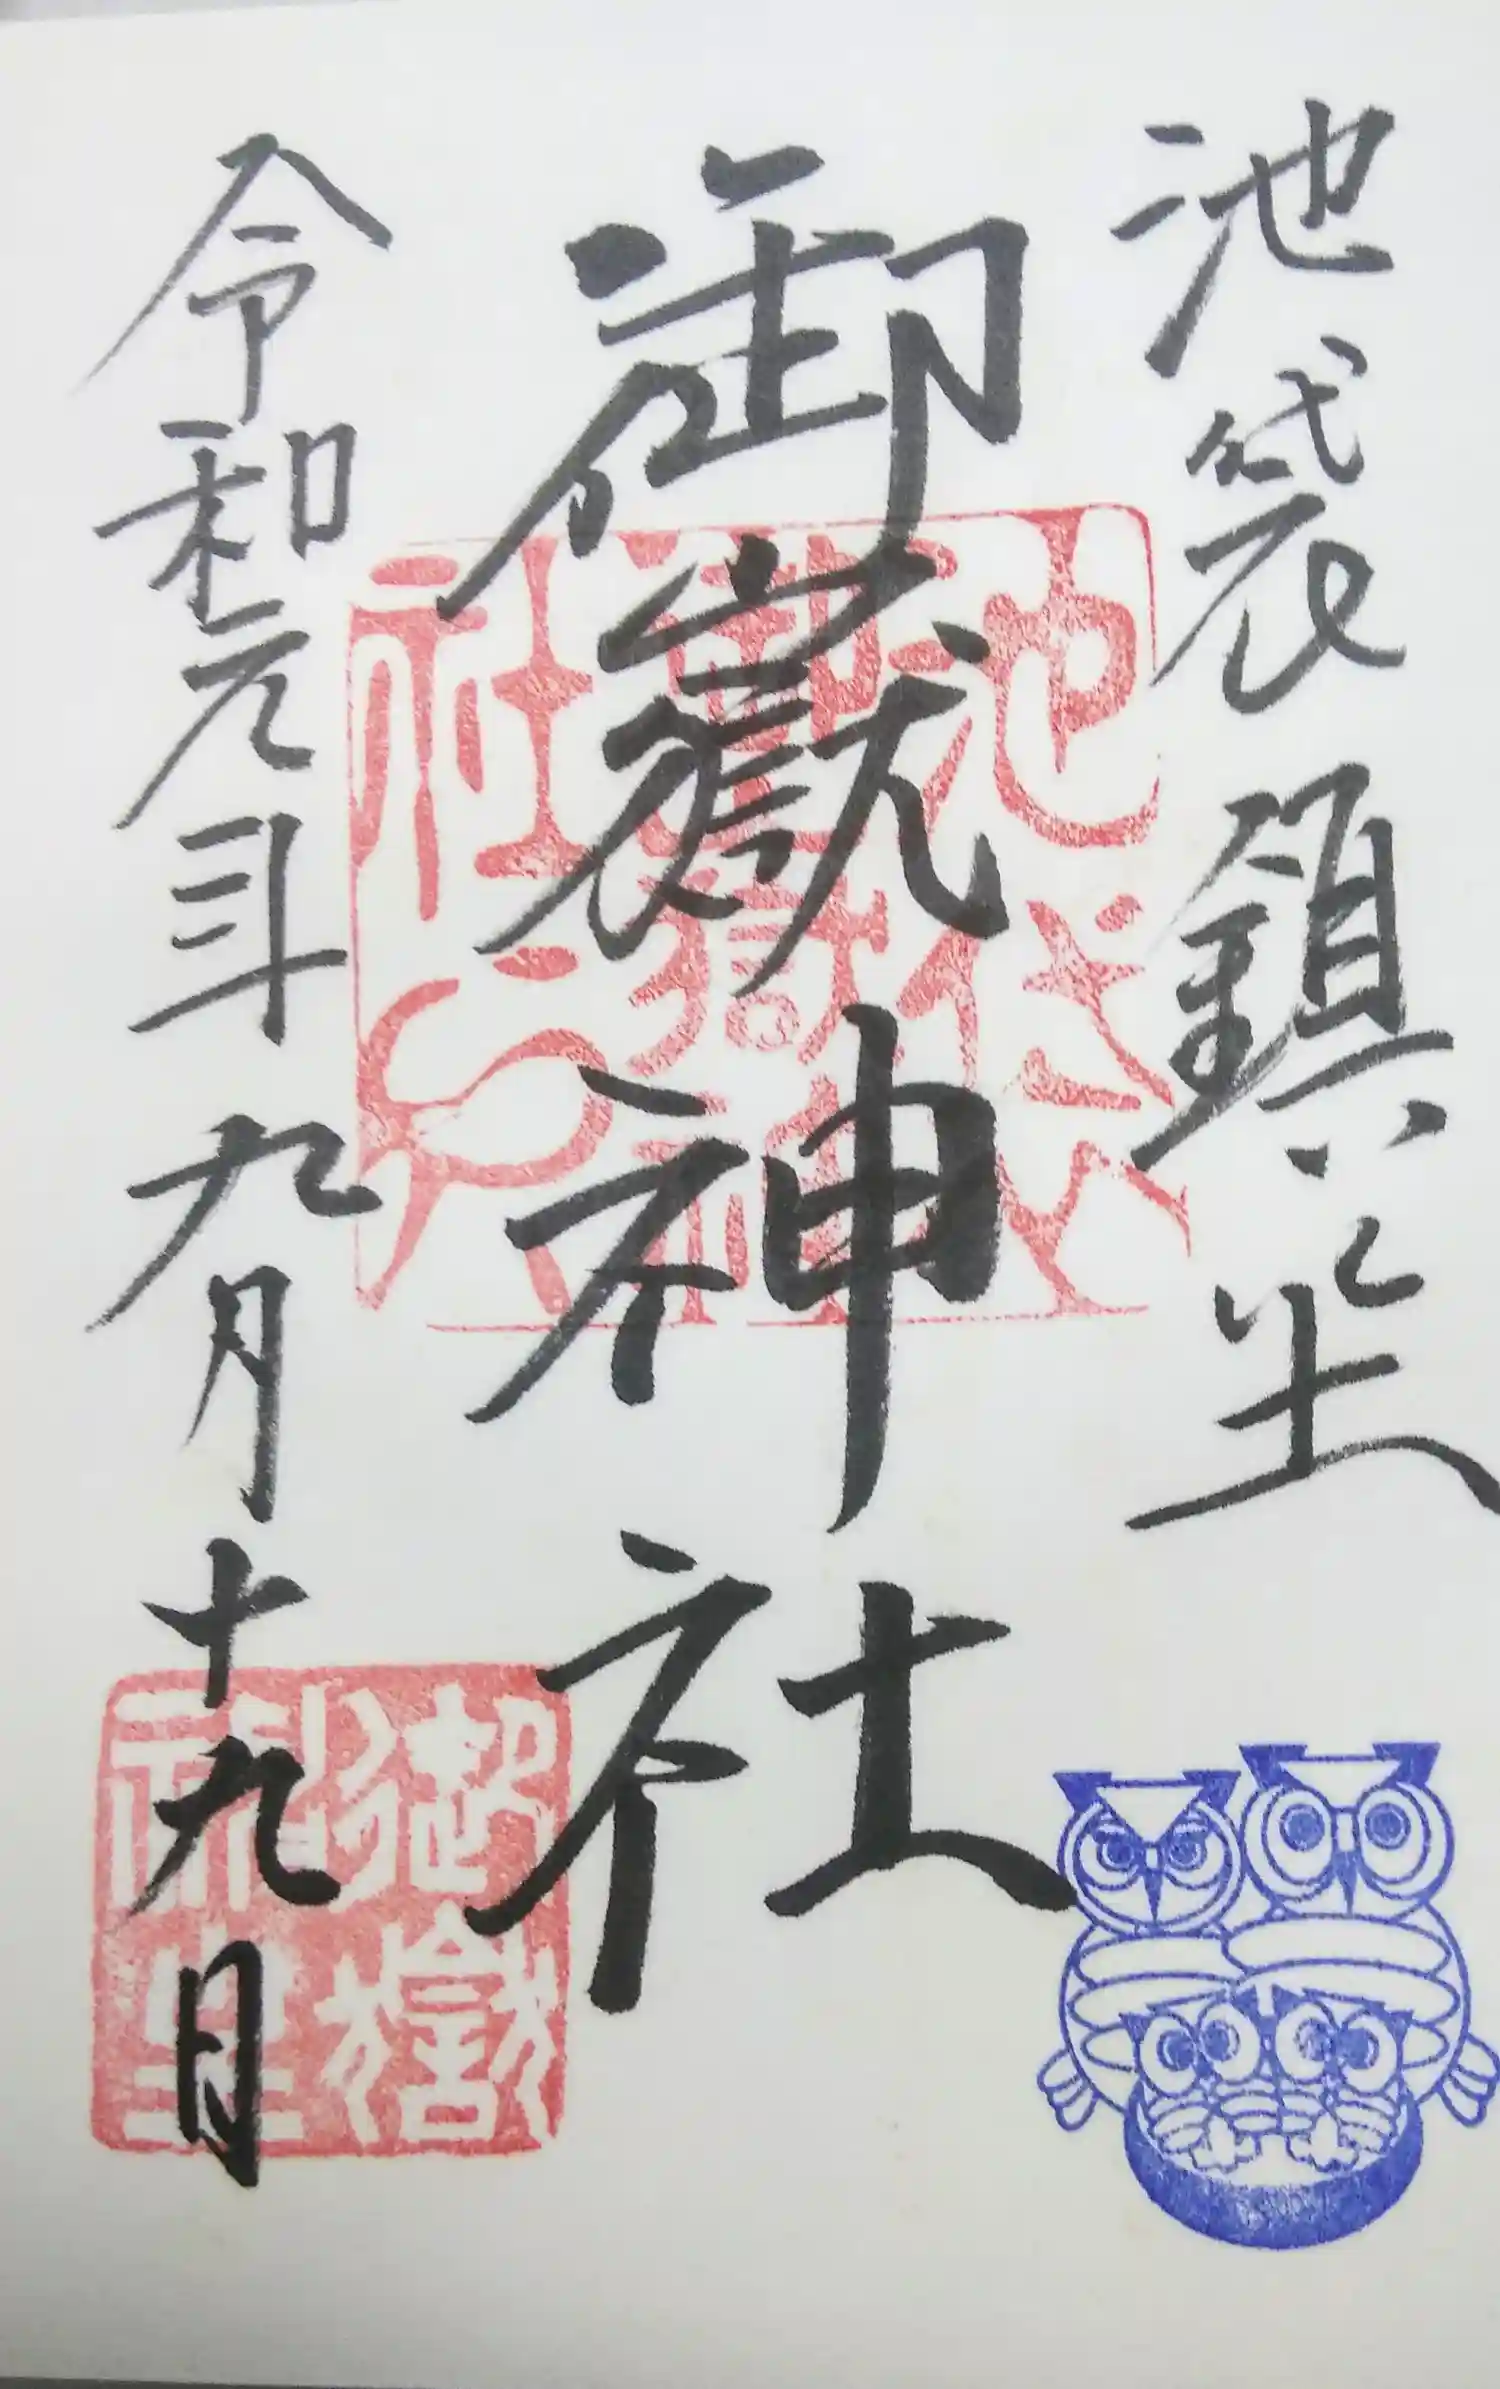 池袋鎮坐
御嶽神社
令和元年九月十九日
池袋
御嶽神
社之印
御嶽
神里